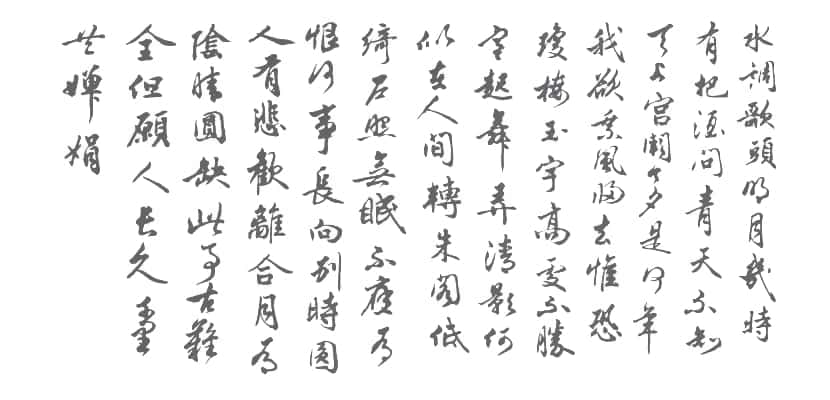 水調歌頭明月幾時
有把酒問青天不知
天上宮闕今夕是何年
我欲乘風歸去惟恐
瓊樓玉宇高處不勝
寒起舞弄清影何
似在人間轉朱閣低
綺戶照無眠不應有
恨何事長向別時圓
人有悲歡離合月有
陰晴圓缺此事古難
全但願人長久千里
共嬋娟